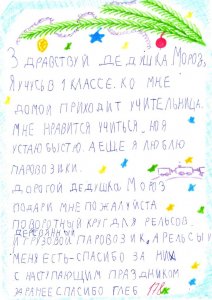 Здравствуй Дедушка Мороз,
Я учусь в 1 классе. Ко мне
домой приходит учительница.
Мне нравится учиться, но я
устаю быстро. А еще я люблю
паровозики.
Дорогой Дедушка Мороз
подари мне пожалуйста
поворотный круг для рельсов
деревянный
и грузовой паровозик, а рельсы у
меня есть-спасибо за них
с наступающим праздником
заранее спасибо Глеб